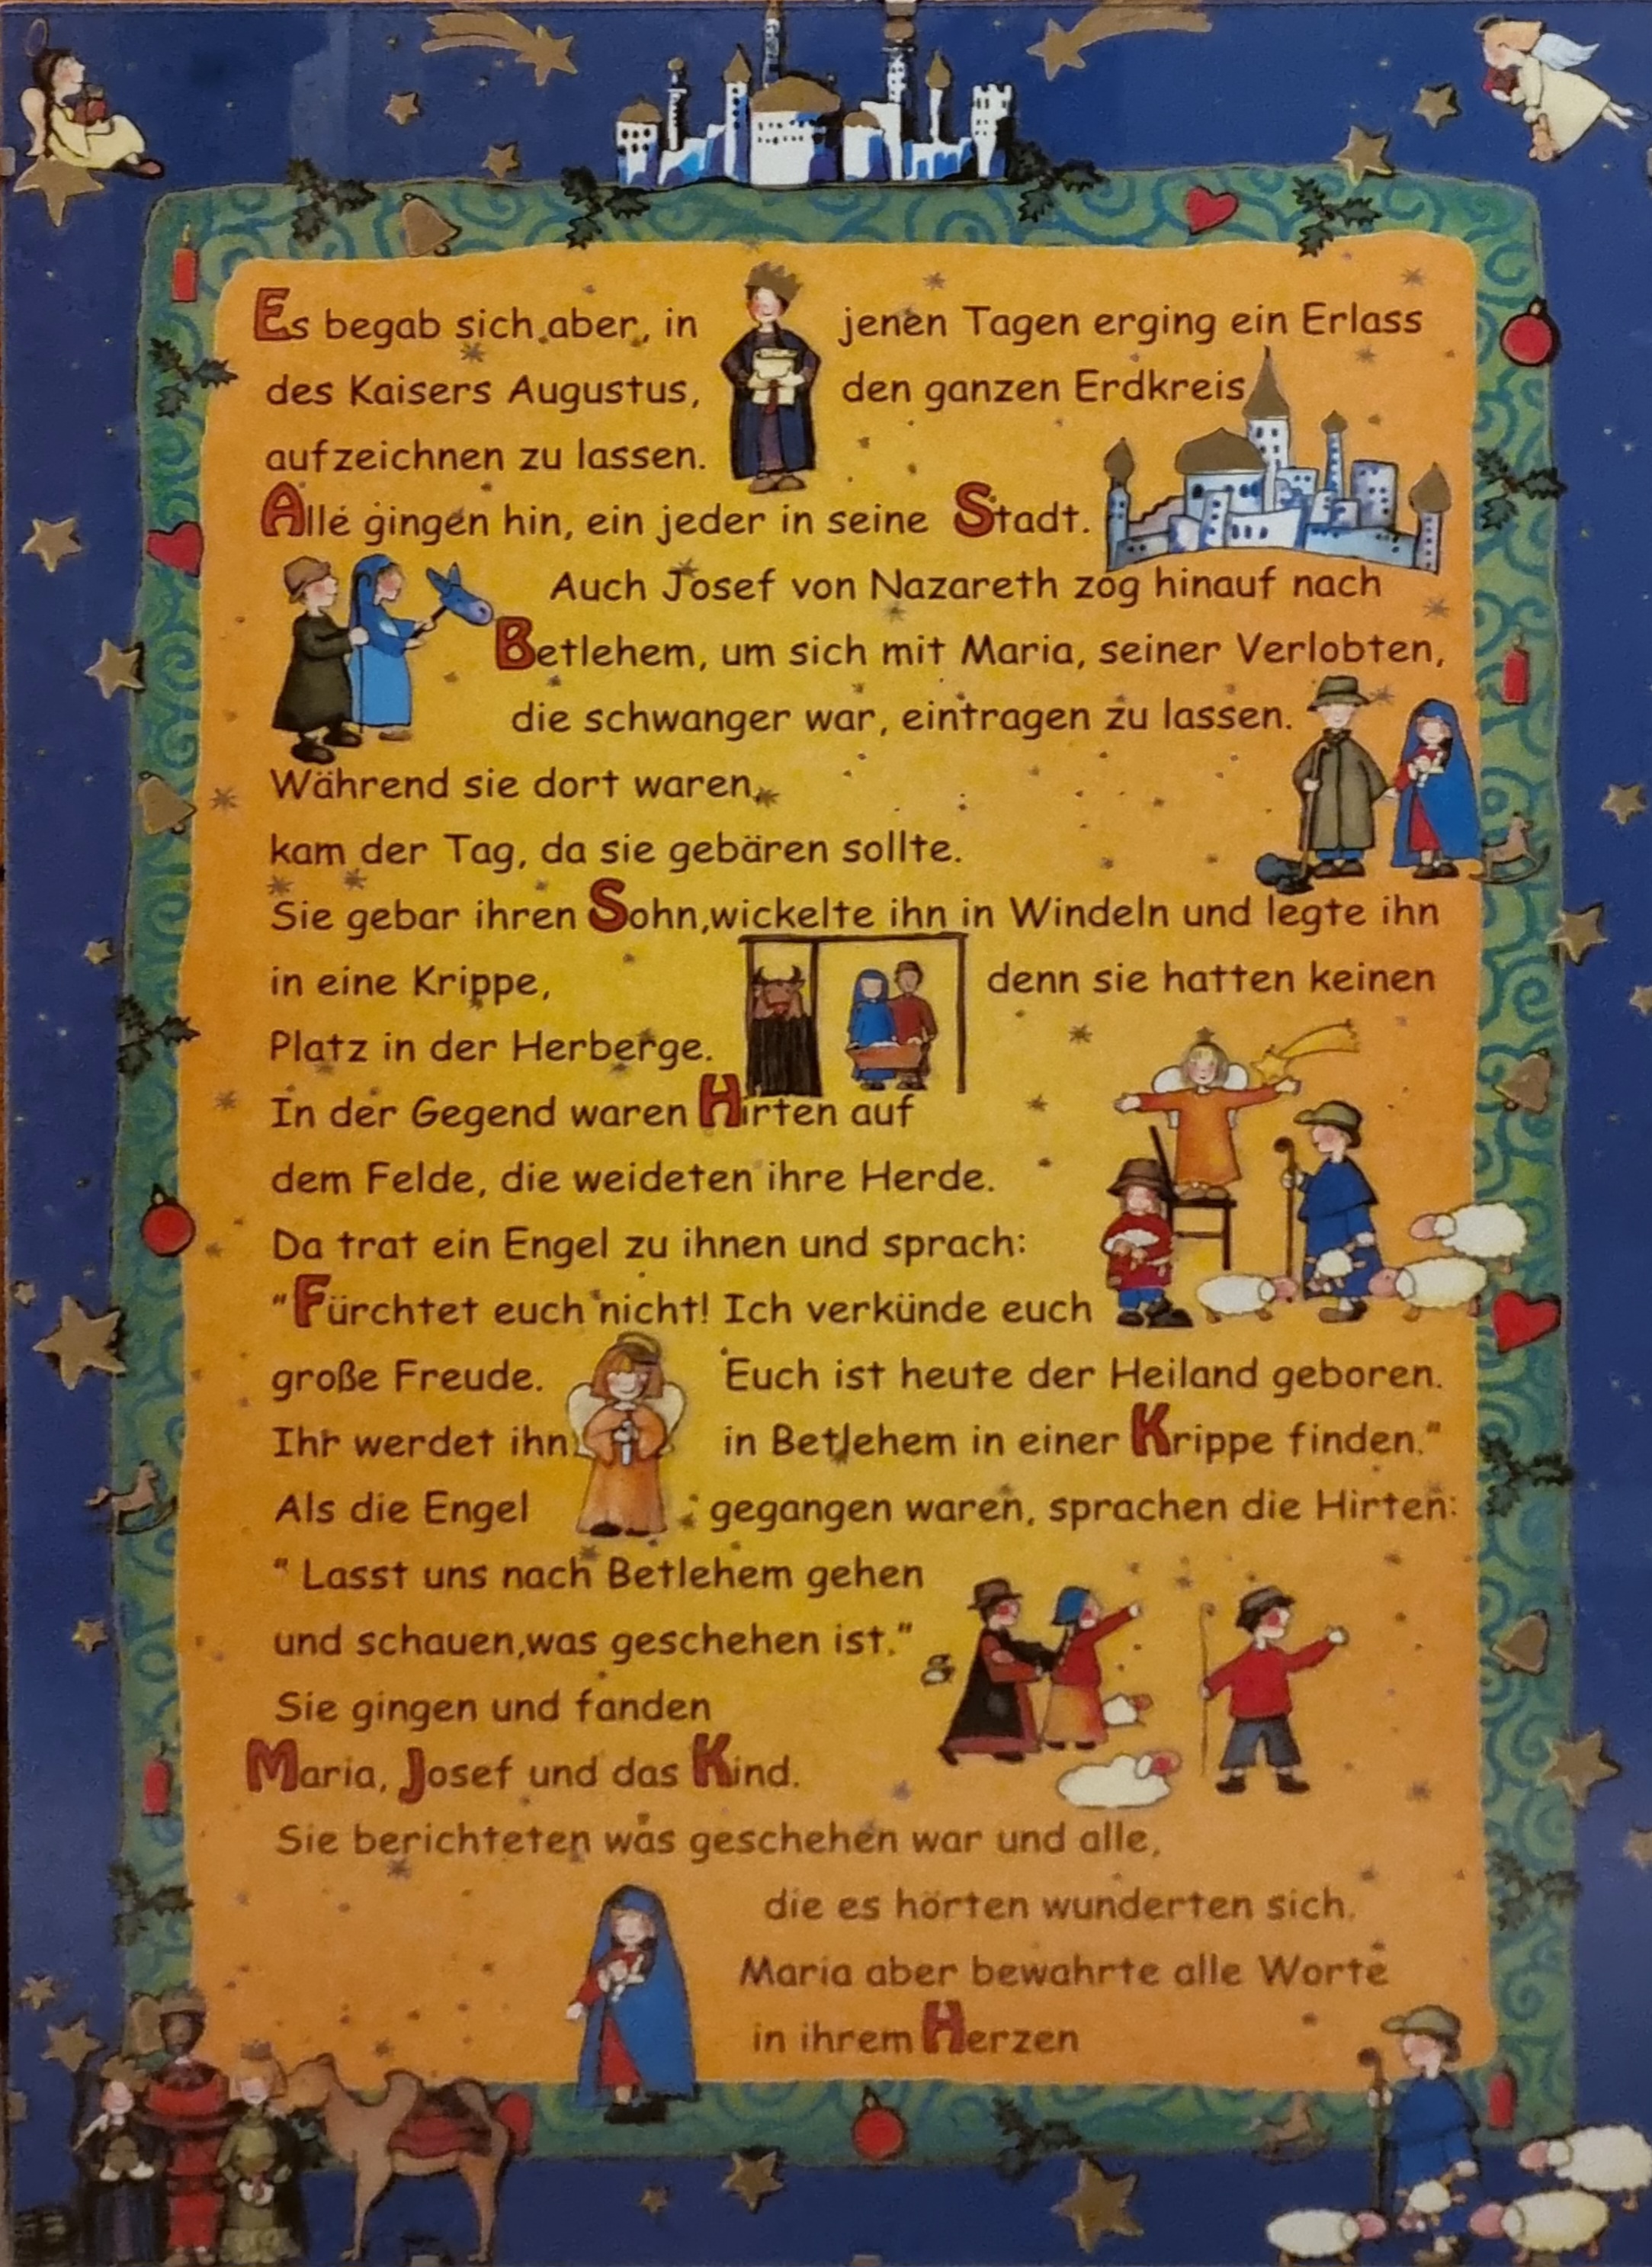 Es begab sich aber, in jenen Tagen erging ein Erlass
des Kaisers Augustus, den ganzen Erdkreis
aufzeichnen zu lassen.
Alle gingen hin, ein jeder in seine Stadt.
Auch Josef von Nazareth zog hinauf nach
Betlehem, um sich mit Maria, seiner Verlobten,
die schwanger war, eintragen zu lassen.
Während sie dort waren,
kam der Tag, da sie gebären sollte.
Sie gebar ihren Sohn,wickelte ihn in Windeln und legte ihn
in eine Krippe, denn sie hatten keinen
Platz in der Herberge.
In der Gegend waren Hirten auf
dem Felde, die weideten ihre Herde.
Da trat ein Engel zu ihnen und sprach:
"Fürchtet euch nicht! Ich verkünde euch
große Freude. Euch ist heute der Heiland geboren.
Ihr werdet ihn in Betlehem in einer Krippe finden."
Als die Engel gegangen waren, sprachen die Hirten:
" Lasst uns nach Betlehem gehen
und schauen,was geschehen ist."
Sie gingen und fanden
Maria, Josef und das Kind.
Sie berichteten was geschehen war und alle,
die es hörten wunderten sich.
Maria aber bewahrte alle Worte
in ihrem Herzen